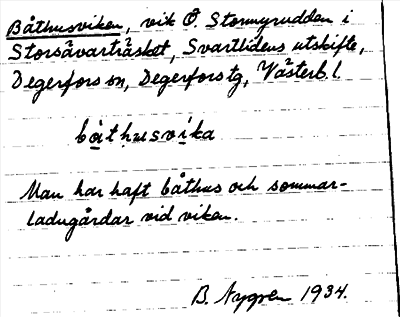 Båthusviken, vik Ö Stormyrudden i
Storsåvarträsket, Svartlidens utskifte,
Degerfors sn, Degerfors tg, Västerb. l.
båtḥusvi̇ka
Man har haft båthus och sommar-
ladugårdar vid viken.
B. Nygren 1934.